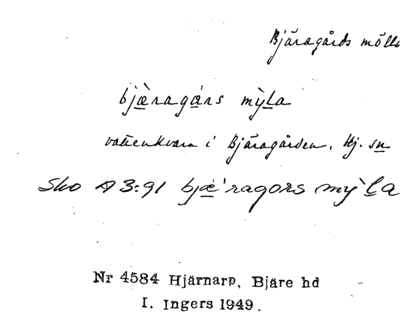 Bjäragårds mölla
bjæ̀ragárs mỳla
vattenkvarn i Bjäragården, Hj. sn
Sko A 3:91 bjæ̀ragors mỳla
Nr 4584 Hjärnarp, Bjäre hd
I. Ingers 1949.